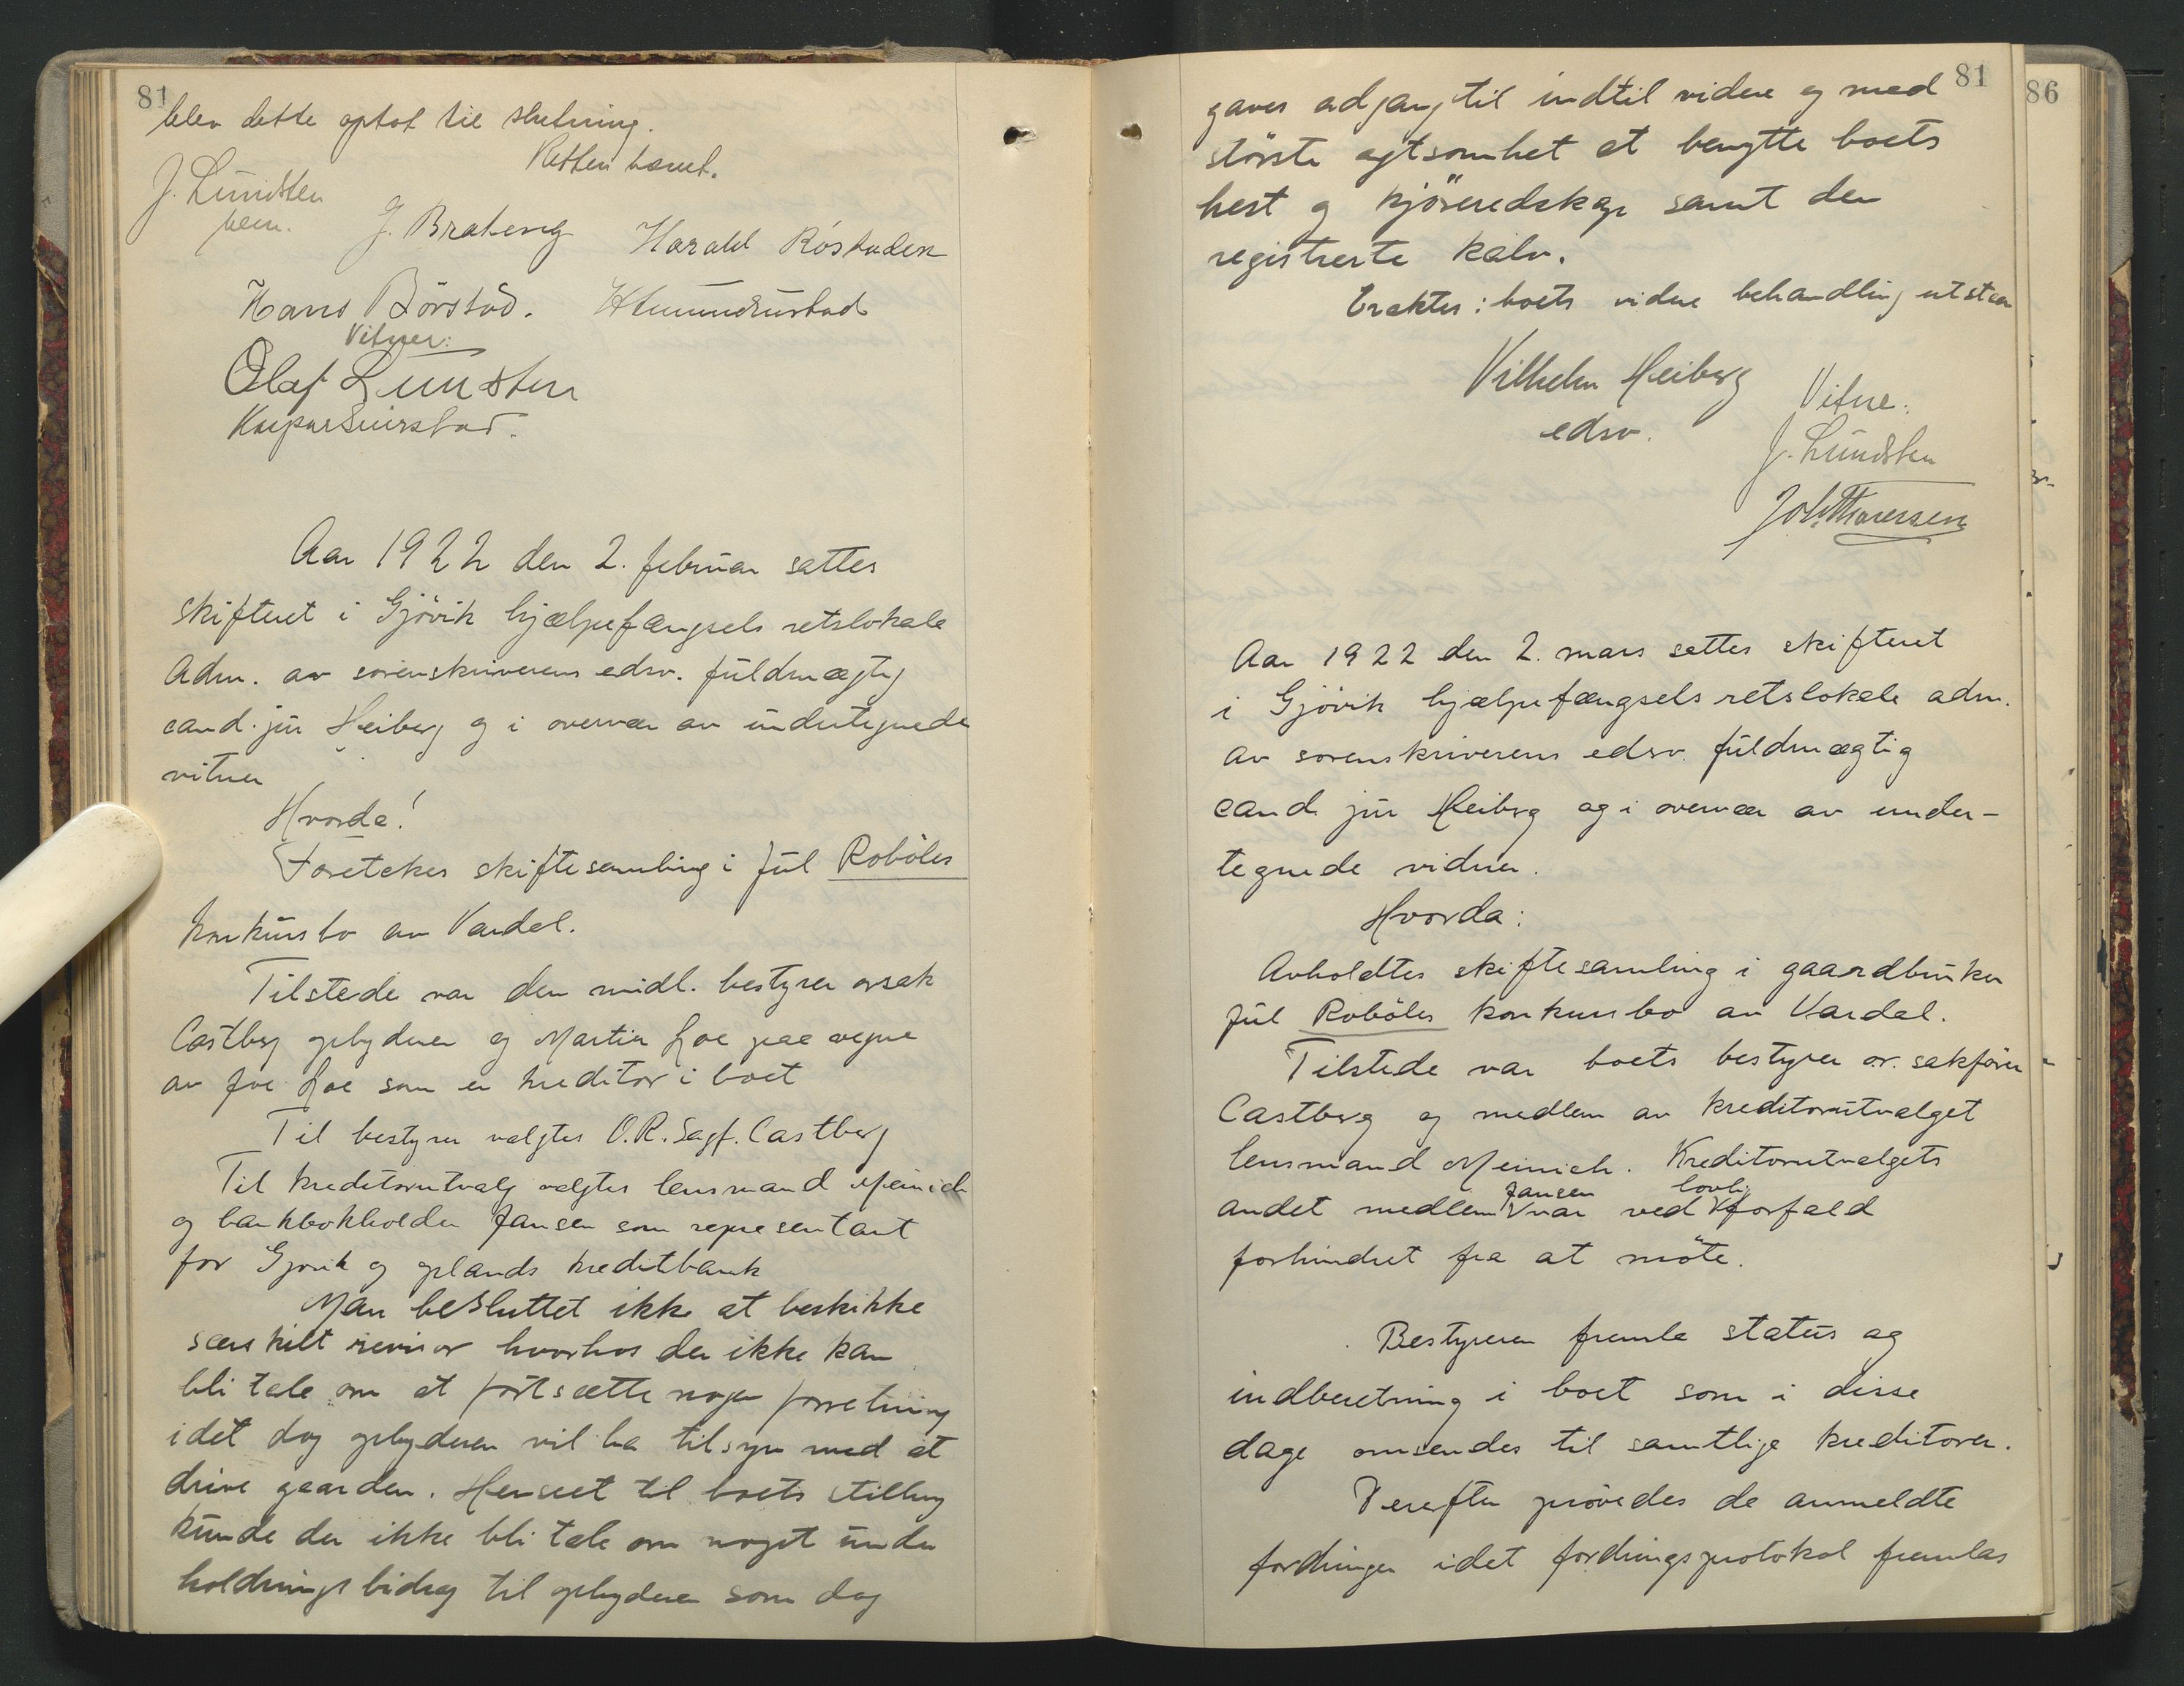 81
blev dette optat til slutning.
Retten hævet.
J. Lundsten
J. Brateng Harald Röstaden
Hans Börstad.
Vitner:
Olaf Lundsten
Aar 1922 den 2. februar sattes
skifteret i Gjövik hjælpefængsels retslokale
Adm. av sorenskriverens edsv. fuldmægtig
cand. jur Heiberg og i overvær av undertegnede
vitner
Hvorda!
Foretokes skiftesamling i Jul Roböles
konkursbo av Vardal.
Tilstede var den midl. bestyrer orsak
Castberg opbyderen og Martin Loe paa vegne
av Joe Loe som er kreditor i boet
Til bestyrer valgtes O.R.Sagf. Castberg
Til kreditorutvalg valgtes lensmand Meinich
og bankbokholder Jansen som representant
for Gjövik og oplands kreditbank
Man besluttet ikke at beskikke
særskilt revisor hvorhos der ikke kan
bli tale om at fortsætte nogen forretning
idet dog opbyderen vil ha tilsyn med at
drive gaarden. Henseet til boets stilling
kunde der ikke bli tale om noget under
holdningsbidrag til opbyderen som dog
81
86
gaves adgang til indtil videre og med
störste agtsomhet at benytte boets
hest og kjöreredskap samt den
registrerte kalv.
Erakter: boets videre behandling utstaar
Vilhelm Heiberg
edsv.
Vitne:
J. Lundsten
Joh Thoresen
Aar 1922 den 2. mars sattes skifteret
i Gjövik hjælpefængsels retslokale adm.
av sorenskriverens edsv. fuldmægtig
cand jur Heiberg og i overvær av under-
tegnede vidner.
Hvorda:
Avholdtes skiftesamling i gaardbruker
Jul Roböles konkursbo av Vardal.
Tilstede var boets bestyrer o.r. sakförer
Castberg og medlem av kreditorutvalget
lensmand Meinich. Kreditorutvalgets
andet medlem Jansen var ved lovlig forfald
forhindret fra at möte.
Bestyreren fremla status og
indberetning i boet som i disse
dage omsendes til samtlige kreditorer.
Derefter prövedes de anmeldte
fordringer idet fordringsprotokol fremlas